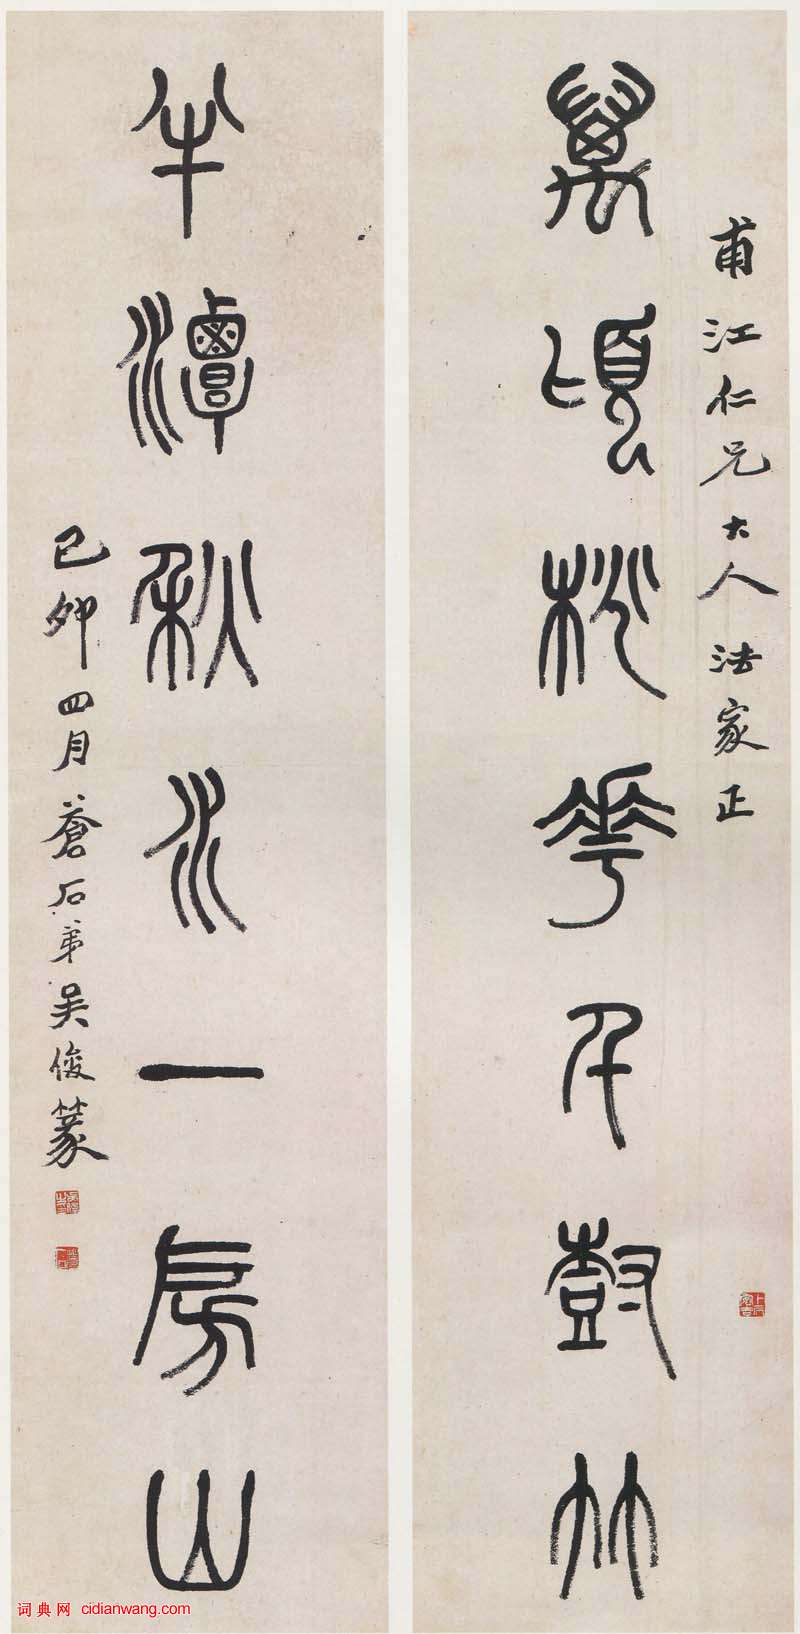 甫江仁兄大人法家正
萬頃桃華千尌竹
半潭秋水一房山
己卯四月蒼石弟吳俊篆
词典网 cidianwang.com